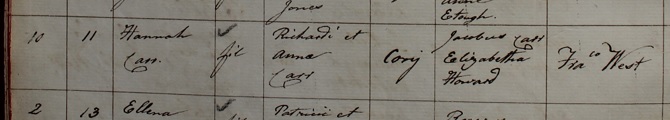 Jones
Etough.
10 11 Hannah fil Richardi et Conj Jacobus Carr
Carr. Annæ Elizabetha Fra co West
Carr Howard
2 13 Ellena Patricii et